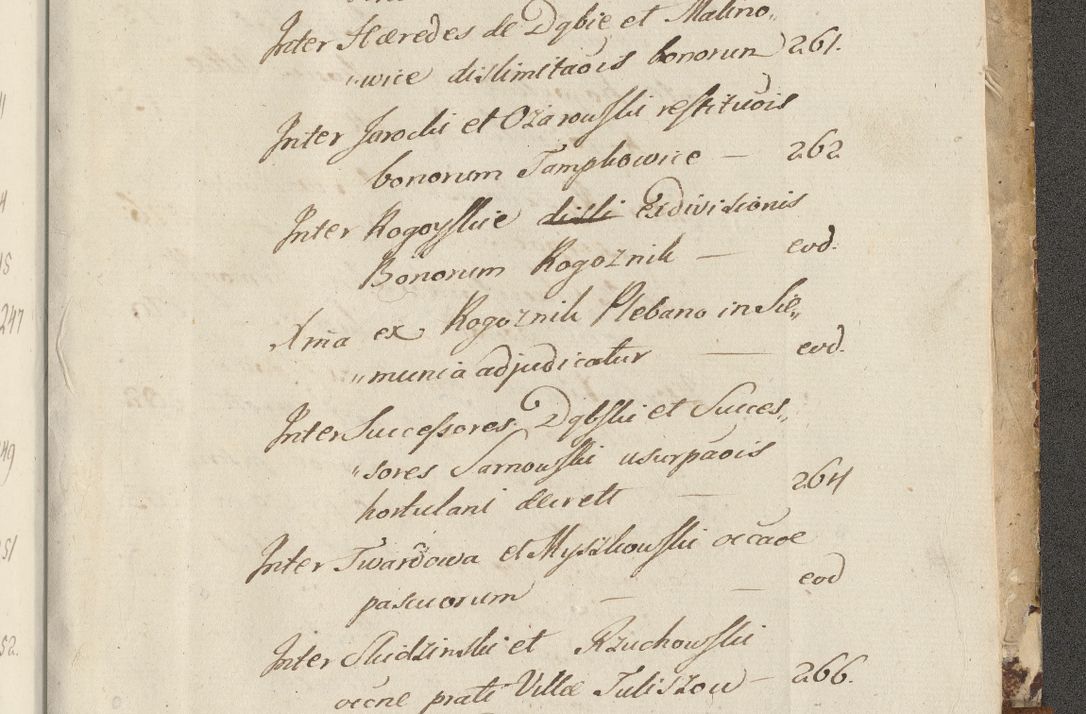 Inter Hæredes de Dąbie et Malino„
„wice dislimitaõis bonorum 261.
Inter Jarocki et Ożarowski restituõis
bonorum Tampkowice — 262
Inter Rogoyskie disli Exdivisionis
Bonorum Rogoznik — eod.
ex Rogoznik Plebano in Sie„
„munia adjudicatur — eod.
Inter Successores Dąbski et Succes„
„sores Sarnowski usurpaõis
hortulani decreti — 264
Inter Twardowa et Myszkowski occaõe
pascuorum — — eod
Inter Studzinski et Rzuchowski
occne prati Villæ Tuliszow — 266.
247
49
51
52.